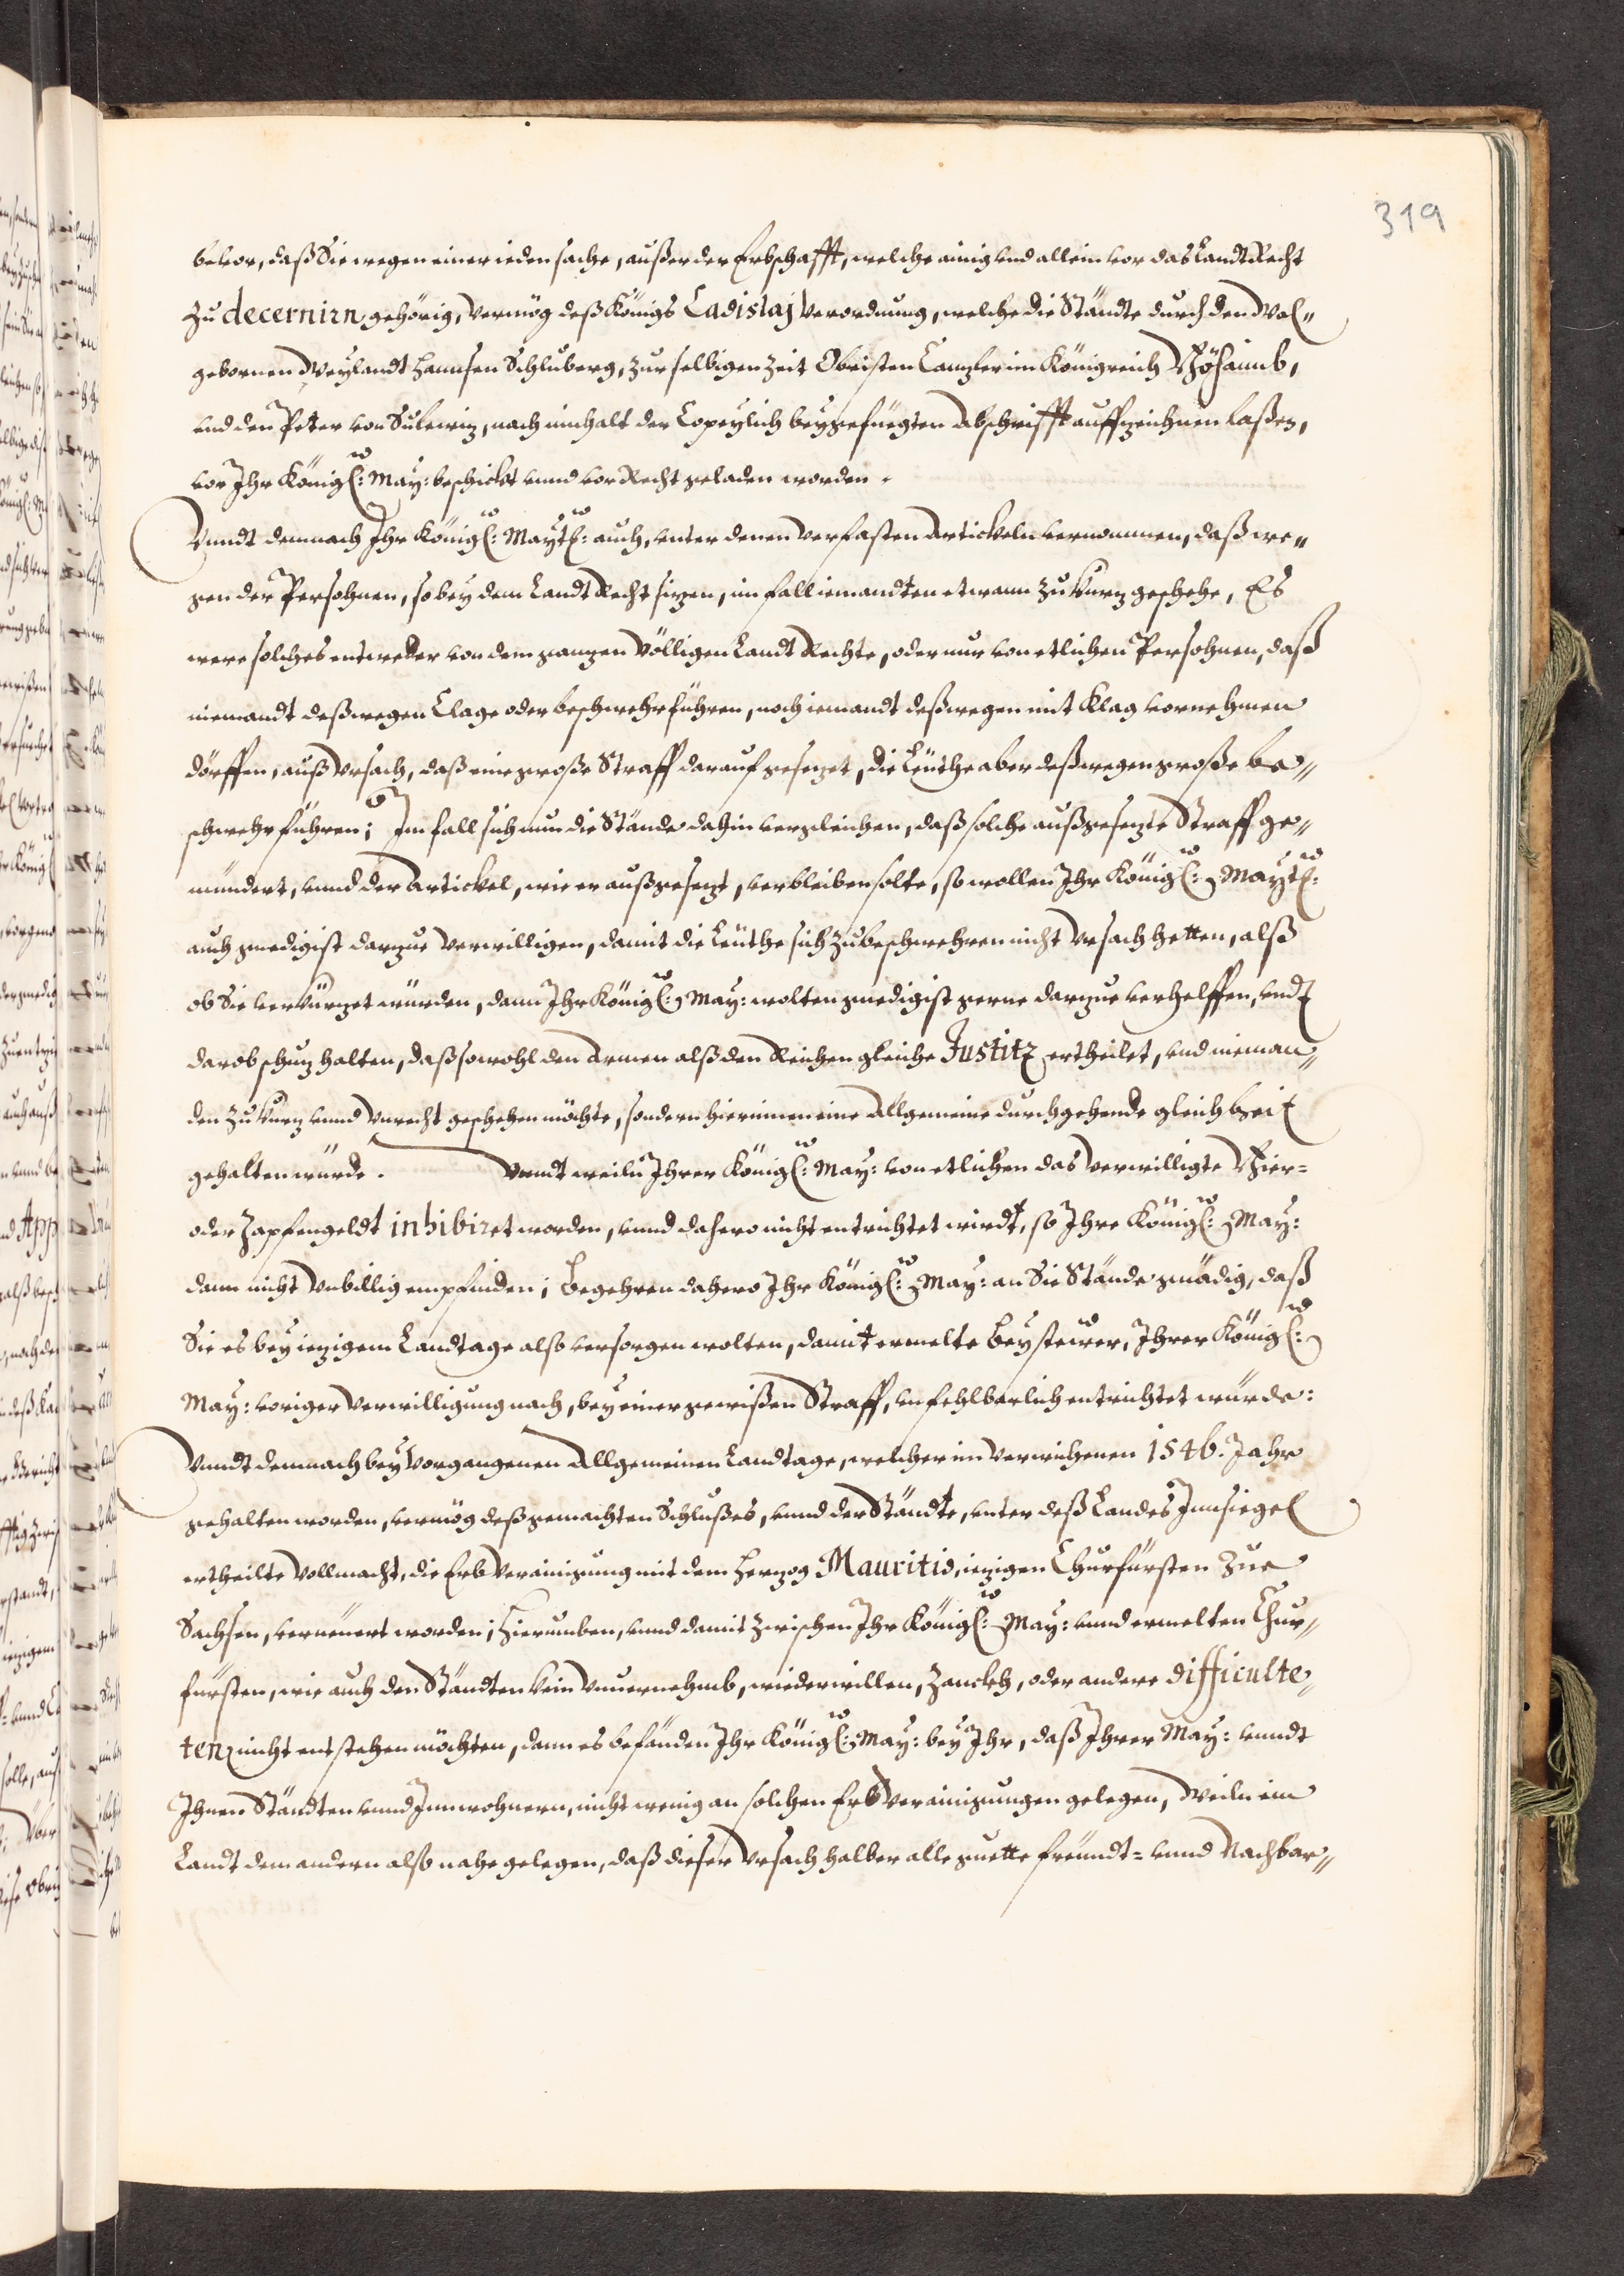 319
bevor, daß Sie wegen einer ieden sache, außer der Erbschafft, welche ainig vnd allein vor das LandtRecht
zu decernirn gehörig, vermög deß Königs Ladislaj verordnung, welche die Ständte durch den Wol„
gebornen Weylandt Hannsen Schluberg, zur selbigen Zeit Obristen Canzler im Königreich Böhaimb,
vnd den Peter von Sulewiz, nach innhalt der Copeylich beygefüegten Abschrifft auffzeichnen laßen,
vor Ihr Königl: May: beschickt vnnd vor Recht geladen worden.
Vnndt demnach Ihr Königl: Maytl: auch, vnter denen verfasten Artickeln vernommen, daß we„
gen der Persohnen, so bey dem LandtRecht sizen, im fall iemandten etwann zu kurz geschehe, Es
were solches entweder von dem ganzen völligen LandtRechte, oder nur von etlichen Persohnen, daß
niemandt deßwegen Clage oder beschwehr führen, noch iemandt deßwegen mit Klag vornehmen
dörffen, auß vrsach, daß eine große Straff darauf gesezet, die Leüthe aber deßwegen große be„
schwehr führen; Im fall sich nun die Stände dahin vergleichen, daß solche außgesezte Straff ge„
mündert, vnnd der Artickel, wie er außgesezt, verbleiben solte, so wollen Ihr Königl: Maytl:
auch gnedigist darzue verwilligen, damit die Leüthe sich zubeschwehren nicht vrsach hetten, alß
ob Sie verkürzet würden, dann Ihr Königl: May: wolten gnedigist gerne darzue verhelffen, vndt
darob schuz halten, daß sowohl den Armen alß den Reichen gleiche Justitz ertheilet, vnd nieman„
den zu kurz vnnd vnrecht geschehen möchte, sondern hierinnen eine Allgemeine durchgehende gleichheit
gehalten würde. Vnndt weiln Ihrer Königl: May: von etlichen das verwilligte Bier=
oder Zapfengeldt inhibiret worden, vnnd dahero nicht entrichtet wirdt, so Ihre Königl: May:
dann nicht vnbillig empfinden; Begehren dahero Ihr Königl: May: an Sie Stände gnädig, daß
Sie es bey iezigem Landtage also versorgen wolten, damit ermelte Beysteüer, Ihrer Königl:
May: voriger verwilligung nach, bey einer gewißen Straff, vnfehlbarlich entrichtet würde:
Vnndt demnach bey vorgangenen Allgemeinen Landtage, welcher im verwichenen 1546. Jahr
gehalten worden, vermög deß gemachten Schlußes, vnnd der Ständte, vnter deß Landes Innsiegel
ertheilte Vollmacht, die Erb Verainigung mit dem Herzog Mauritio, iezigen Churfürsten zue
Sachsen, verneüert worden; Hierumben, vnnd damit zwischen Ihr Königl: May: vnnd ermelten Chur„
fürsten, wie auch den Ständten kein vnuernehmb, wiederwillen, Zanckh, oder andere difficulte„
ten nicht entstehen möchten, dann es befänden Ihr Königl: May: bey Ihr, daß Ihrer May: vnndt
Ihnen Ständten vnnd Innwohnern, nicht wenig an solchen Erb verainigungen gelegen, Weiln ein
Landt dem andern also nahe gelegen, daß dieser vrsach halber alle guette freündt= vnnd Nachbar„